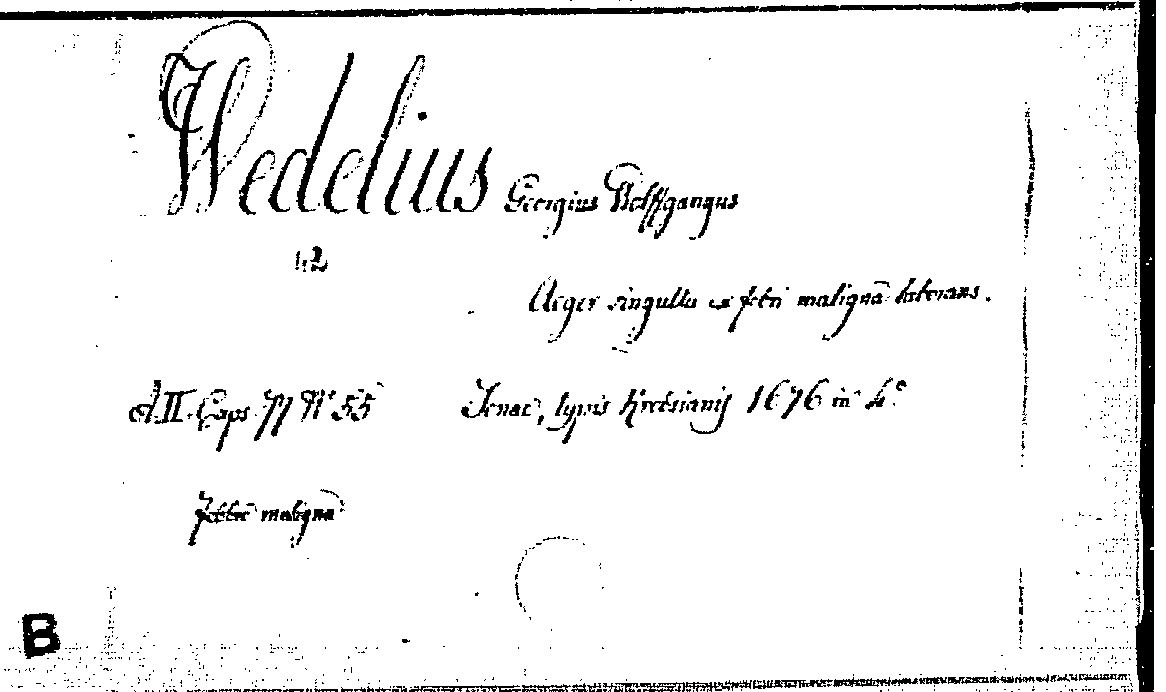 Wedelius Georgius Wolffgangus
42
Aeger singultu ex febri malignâ laborans.
A II. Caps N° 55
Jenae, typis Krebsianis 1676 in 4°
Febris maligna
B